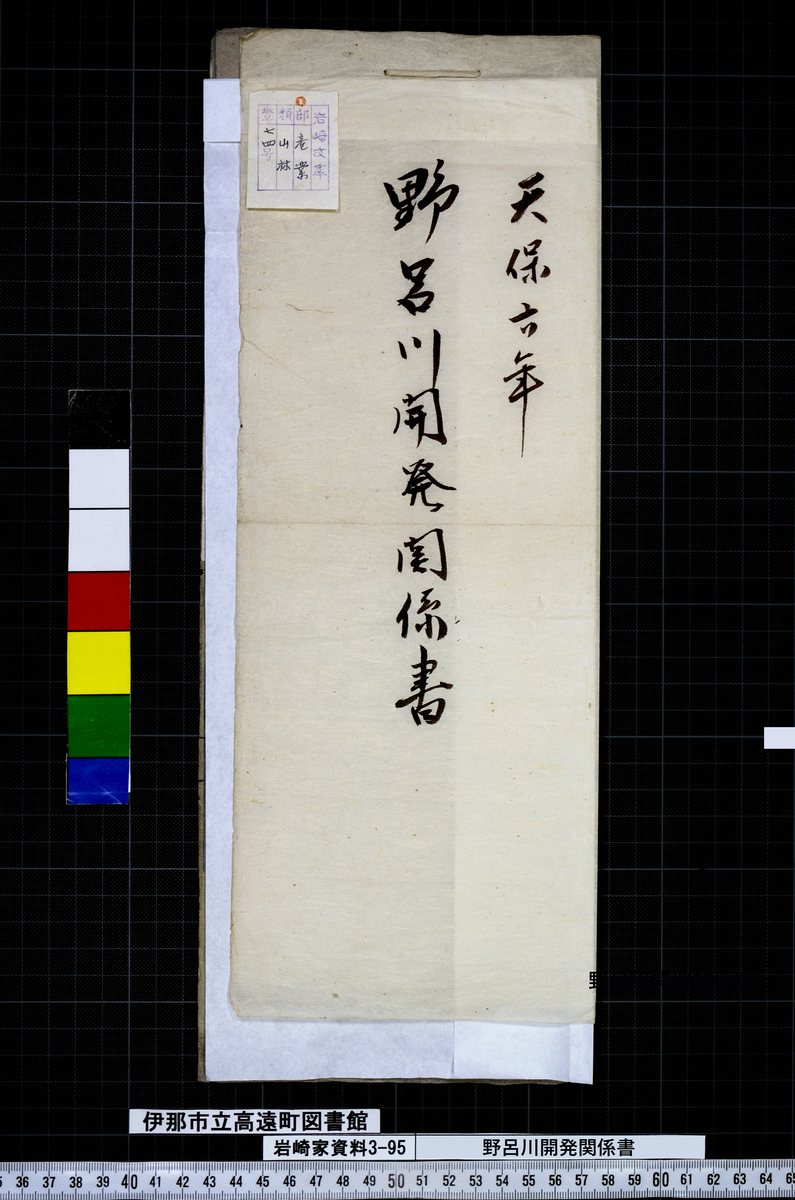 天保六年
野呂川開発関係書
岩崎文庫
部 産業
類 山林
七四号
野
伊那市立高遠町図書館
岩崎家資料3-95
野呂川開発関係書
36 37 38 39 40 41 42 43 44 45 46 47 48 49 50 51 52 53 54 55 56 57 58 59 60 61 62 63 64 65